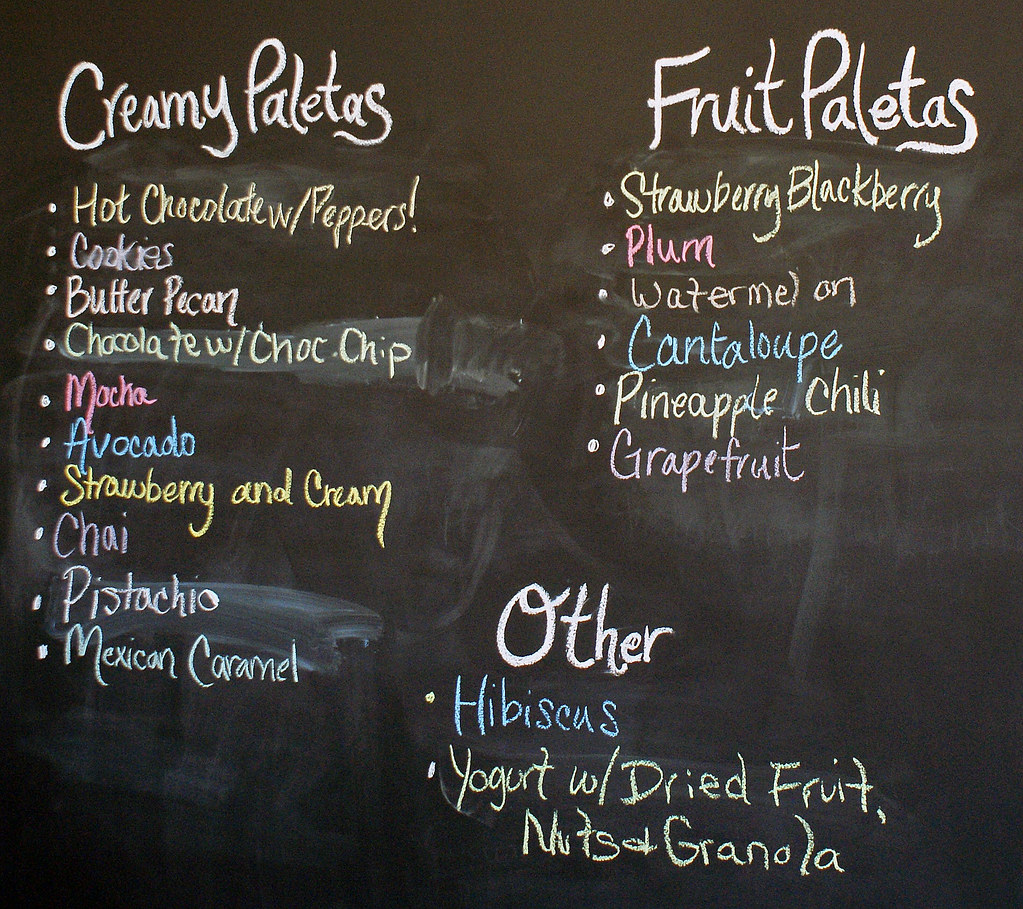 Creamy Paletas
• Hot Chocolate w/Peppers!
• Cookies
• Butter Pecan
• Chocolate w/Choc. Chip
• Mocha
• Avocado
• Strawberry and Cream
• Chai
• Pistachio
• Mexican Caramel
Fruit Paletas
• Strawberry Blackberry
• Plum
• Watermelon
• Cantaloupe
• Pineapple Chili
• Grapefruit
Other
• Hibiscus
• Yogurt w/Dried Fruit,
Nuts & Granola